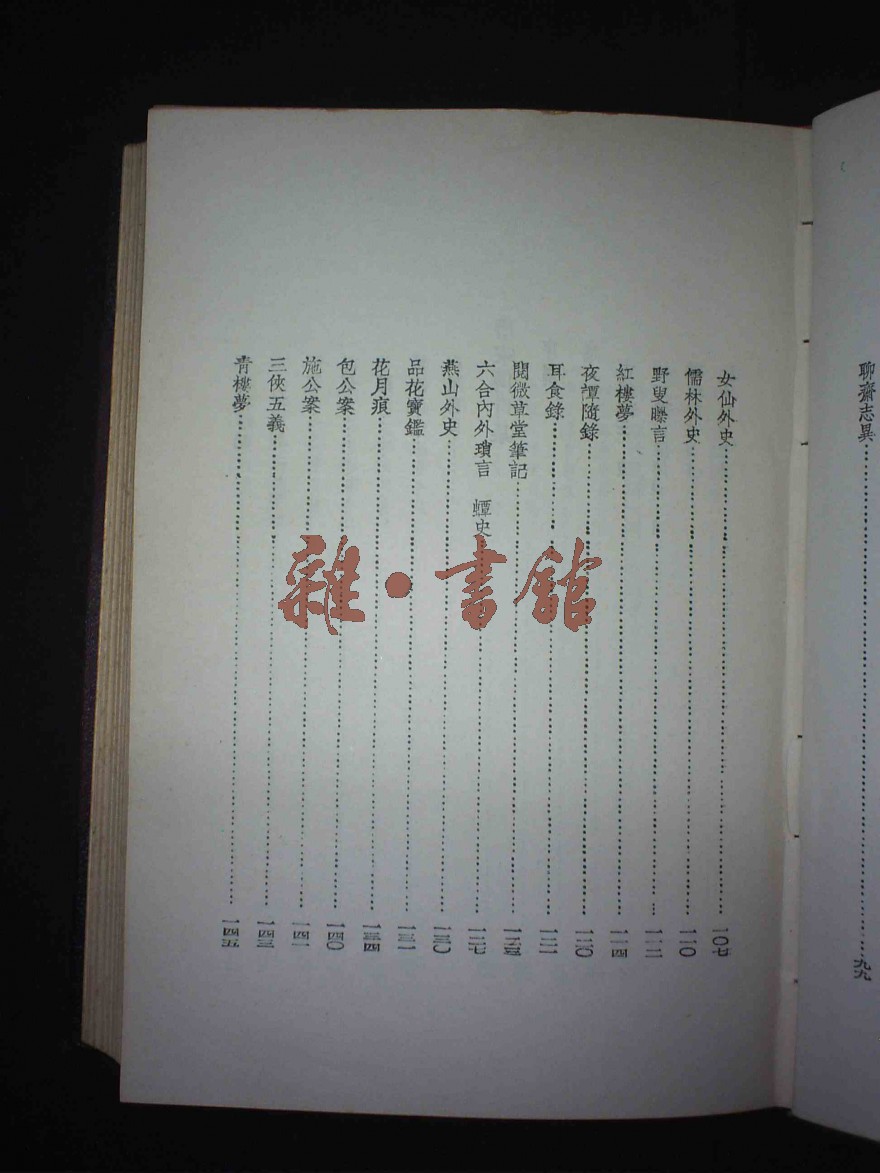 聊齋志異……九九
女仙外史……一〇七
儒林外史……一一〇
野叟曝言……一一二
紅樓夢……一一四
夜譚隨錄……一二〇
耳食錄……一二二
閱微草堂筆記……一二五
六合內外瑣言　蟫史……一二七
燕山外史……一三〇
品花寶鑑……一三一
花月痕……一三四
包公案……一四〇
施公案……一四一
三俠五義……一四三
青樓夢……一四五
雜·書館